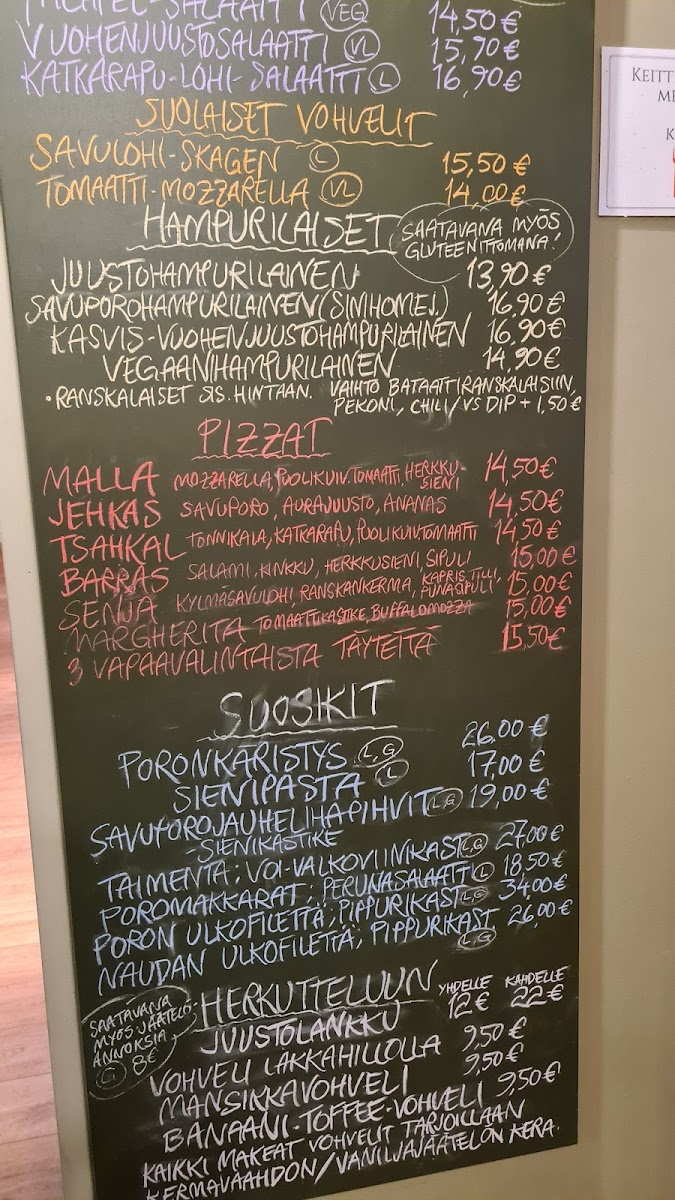 SALAATTI (VEG) 14,50 €
VUOHENJUUSTOSALAATTI (VL) 15,90 €
KATKARAPU-LOHI-SALAATTI (L) 16,90 €
SUOLAISET VOHVELIT
SAVULOHI-SKAGEN (L) 15,50 €
TOMAATTI-MOZZARELLA (VL) 14,00 €
HAMPURILAISET
SAATAVANA MYÖS
GLUTEENITTOMANA!
JUUSTOHAMPURILAINEN 13,90 €
SAVUPOROHAMPURILAINEN (SIN.HOMEJ.) 16,90 €
KASVIS-VUOHENJUUSTOHAMPURILAINEN 16,90 €
VEGAANIHAMPURILAINEN 14,90 €
• RANSKALAISET SIS. HINTAAN. VAIHTO BATAATTIRANSKALAISIIN,
PEKONI, CHILI/VS DIP + 1,50 €
PIZZAT
MALLA MOZZARELLA, PUOLIKUIV. TOMAATTI, HERKKU-
SIENI 14,50 €
JEHKAS SAVUPORO, AURAJUUSTO, ANANAS 14,50 €
TSAHKAL TONNIKALA, KATKARAPU, PUOLIKUIVTOMAATTI 14,50 €
BARRAS SALAMI, KINKKU, HERKKUSIENI, SIPULI 15,00 €
SENJA KYLMÄSAVULOHI, RANSKANKERMA, KAPRIS, TILLI,
PUNASIPULI 15,00 €
MARGHERITA TOMAATTIKASTIKE, BUFFALOMOZZA 15,00 €
3 VAPAAVALINTAISTA TÄYTETTÄ 15,50 €
SUOSIKIT
PORONKÄRISTYS (L,G) 26,00 €
SIENIPASTA (L) 17,00 €
SAVUPOROJAUHELIHAPIHVIT (L,G) 19,00 €
-SIENIKASTIKE
TAIMENTA; VOI-VALKOVIINIKAST (L,G) 27,00 €
POROMAKKARAT; PERUNASALAATTI (L) 18,50 €
PORON ULKOFILETTÄ; PIPPURIKAST (L,G) 34,00 €
NAUDAN ULKOFILETTÄ; PIPPURIKAST. (L,G) 26,00 €
SAATAVANA
MYÖS JÄÄTELÖ-
ANNOKSIA
(G) 8€
HERKUTTELUUN YHDELLE KAHDELLE
JUUSTOLANKKU 12 € 22 €
VOHVELI LAKKAHILLOLLA 9,50 €
MANSIKKAVOHVELI 9,50 €
BANAANI-TOFFEE-VOHVELI 9,50 €
KAIKKI MAKEAT VOHVELIT TARJOILLAAN
KERMAVAAHDON/VANILJAJÄÄTELÖN KERA.
KEITT
ME
K